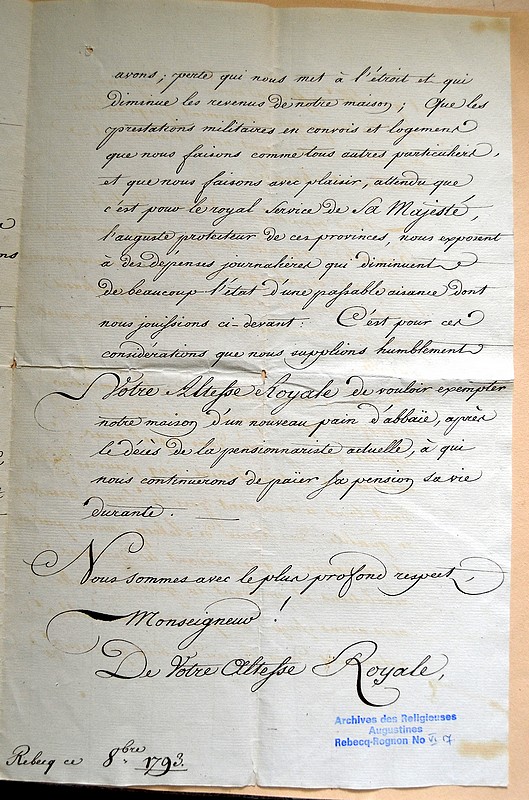 avons; perte qui nous met à l'étroit et qui
diminue les revenus de notre maison; Que les
prestations militaires en convois et logemens
que nous faisons comme tous autres particuliers,
et que nous faisons avec plaisir, attendu que
c'est pour le royal Service de Sa Majesté,
l'auguste protecteur de ces provinces, nous exposent
à des dépenses journalieres qui diminuent
de beaucoup l'état d'une passable aisance dont
nous jouissions ci-devant: C'est pour ces
considérations que nous supplions humblement
Votre Altesse Royale de vouloir exempter
notre maison d'un nouveau pain d'abbaïe, après
le décès de la pensionnariste actuelle, à qui
nous continuerons de païer sa pension sa vie
durante.
Nous sommes avec le plus profond respect,
Monseigneur!
De Votre Altesse Royale,
Archives des Religieuses
Augustines
Rebecq-Rognon No VI 17
Rebecq ce 8bre 1793.